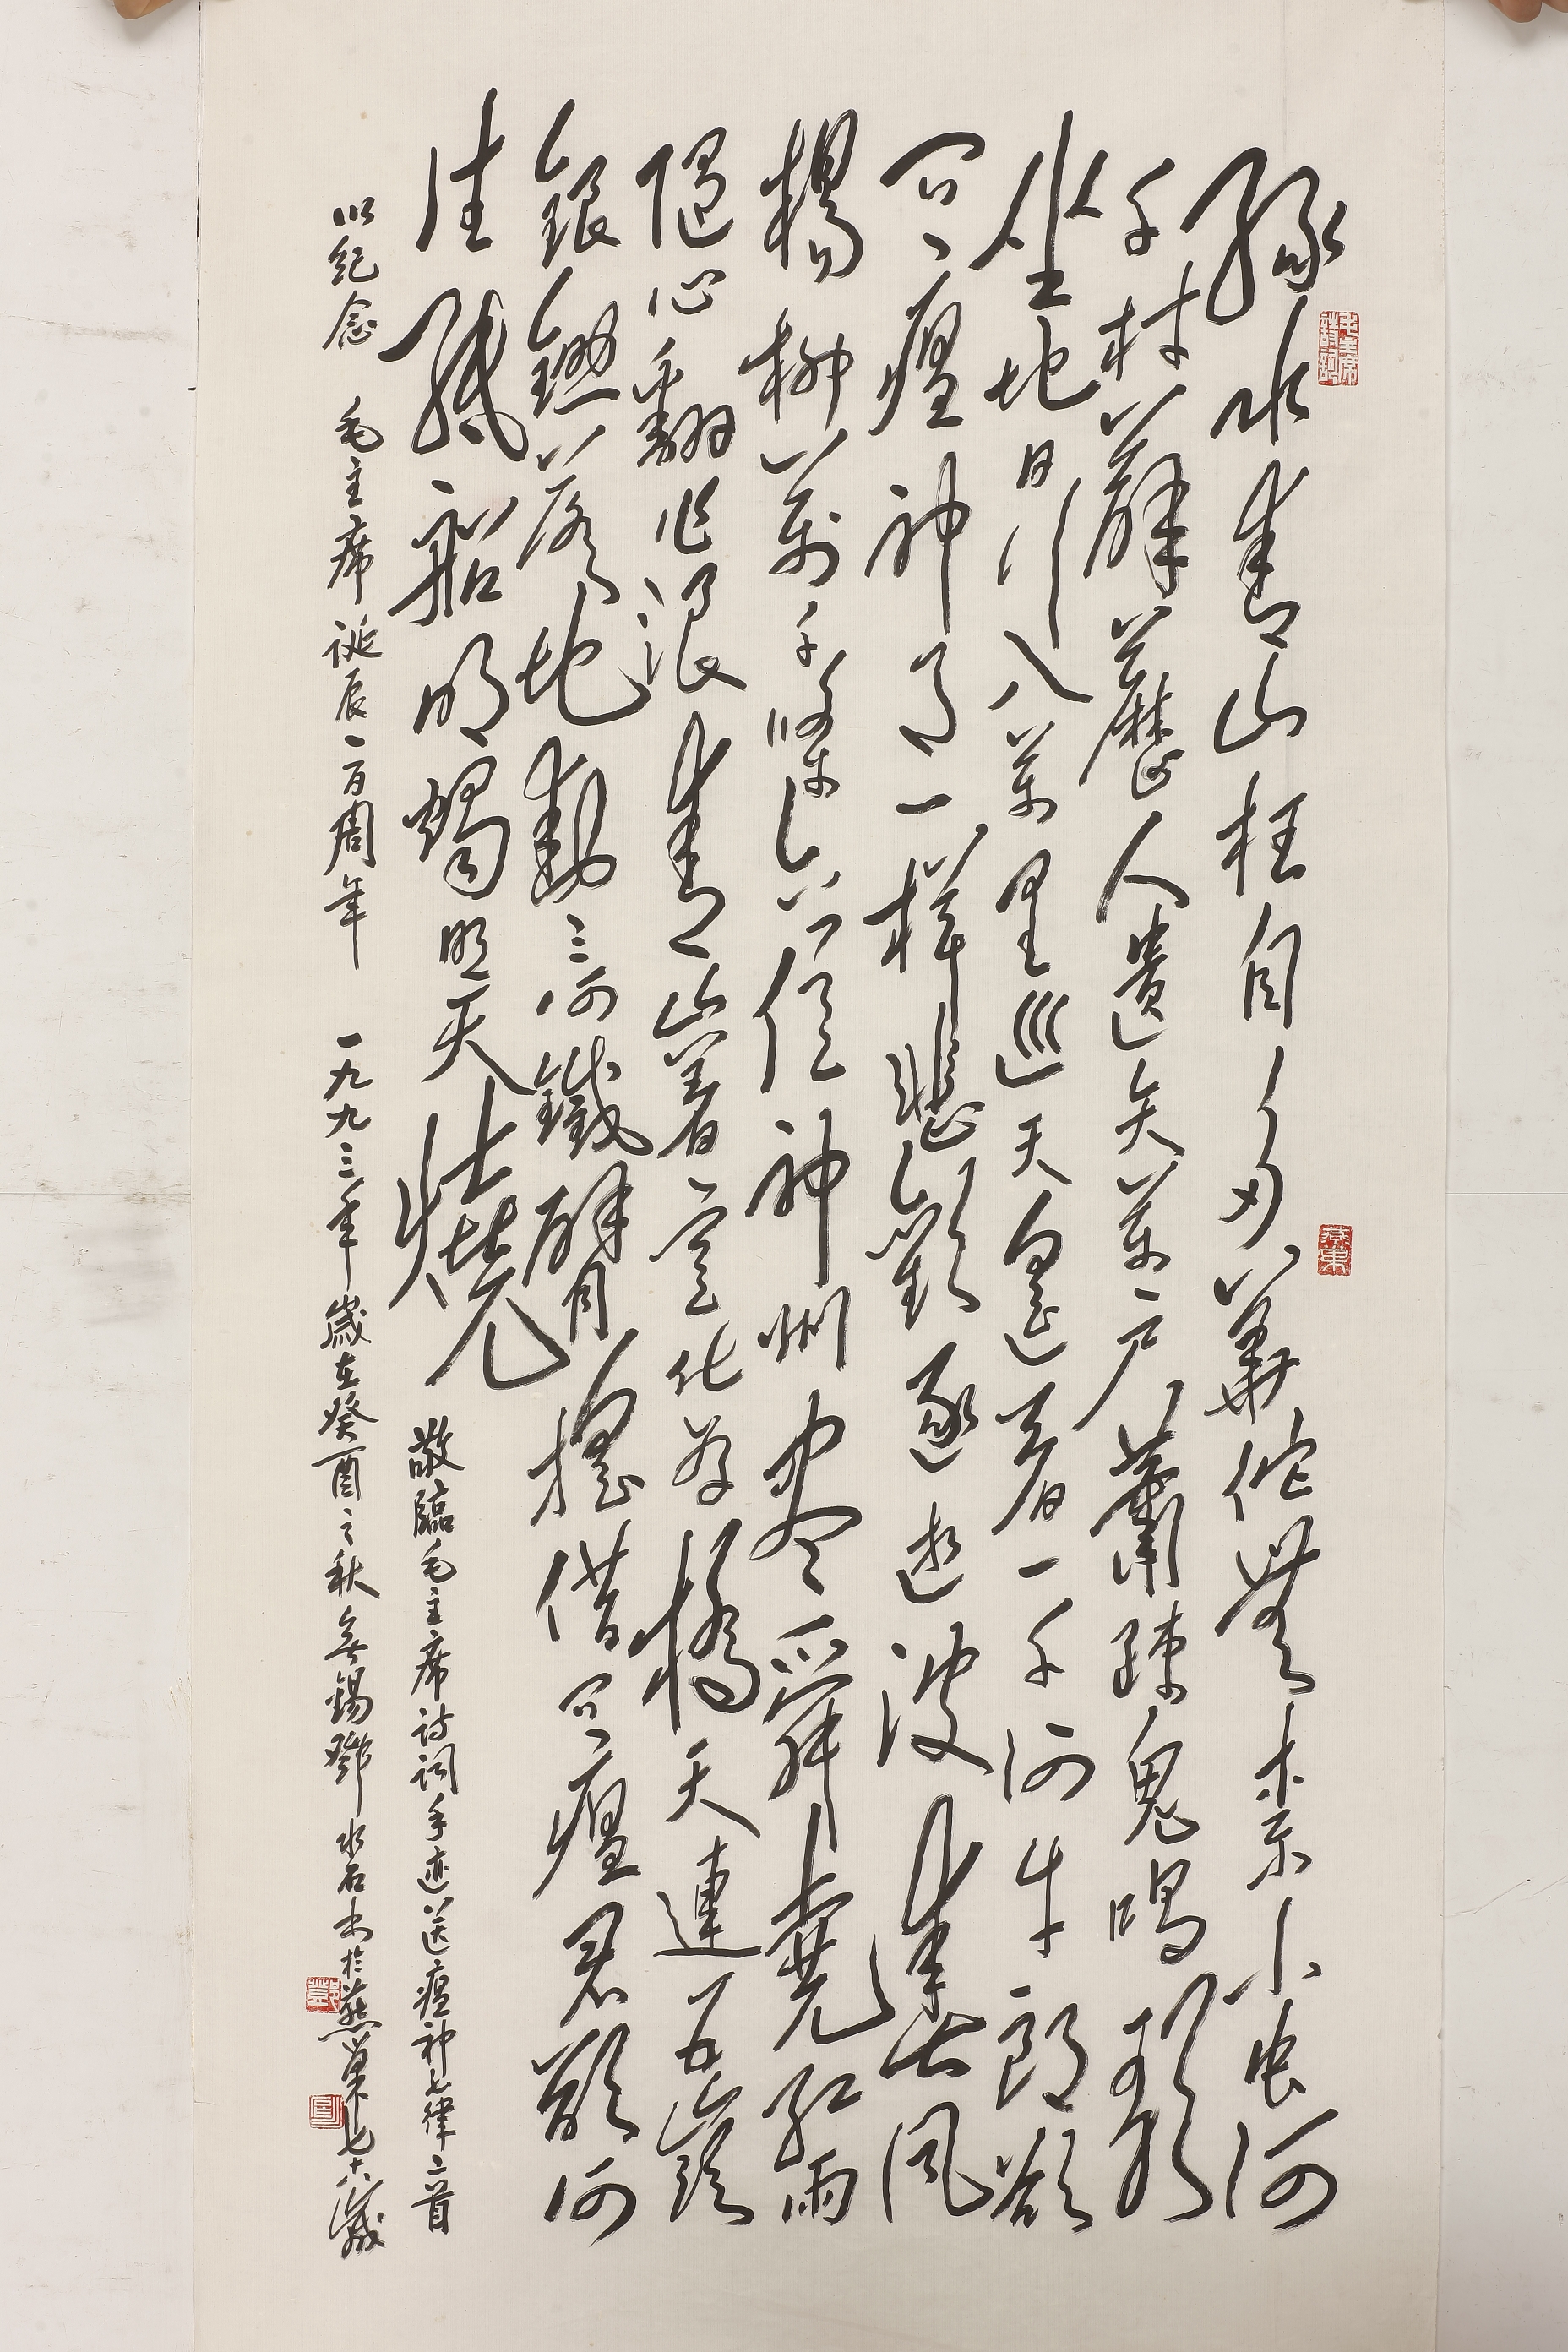 毛主席詩詞
燕巢
綠水青山枉自多華佗無奈小虫何
千村薜藶人遺矢萬户蕭疎鬼唱歌
坐地日行八萬里巡天遥看一千河牛郎欲
问瘟神事一樣悲歡逐逝波春風
楊柳萬千條六億神州盡舜堯紅雨
隨心翻作浪青山着意化為橋天連五嶺
銀鋤落地動三河鐵臂摇借问瘟君欲何
往紙船明燭照天燒
敬臨毛主席诗词手迹送瘟神七律二首
以纪念 毛主席诞辰一百周年 一九九三年歲在癸酉之秋無錫鄧水石书於燕巢七十八歲
鄧